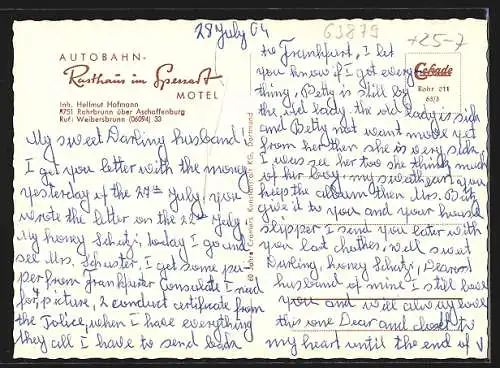 28 July 04
63879
+25-7
AUTOBAHN-
Rasthaus im Spessart
MOTEL
Inh. Hellmut Hofmann
8751 Rohrbrunn über Aschaffenburg
Ruf: Weibersbrunn (06094) 33
Cekade
Rohr 211
66/3
60 Jahre Cramers Kunstanstalt KG, Dortmund
My sweet Darling husband!
I get you letter with the money
yesterday of the 27th July, you
wrote the letter on the 22th July
My honey Schatzi, today I go and
see Mrs. Schuster, I get some pa
per from Frankfurter Consulate I need
for picture, 2 conduct certificate from
the Police, when I have everything
they all I have to send back
to Frankfurt, I let
you know if I get every
thing, Betty is still by
the old lady, the old lady is sich
and Betty not want move yet
from her then she is very sich,
I was see her too she things much
of her boy, my sweetheart you
keep the album then Mrs. Betz
give it to you and your house
slipper I send you later with
you last clothes, well sweet
Darling, honey Schatzi, Dearest
husband of mine I still love
you and will always love
the one Dear and closet to
my heart until the end of